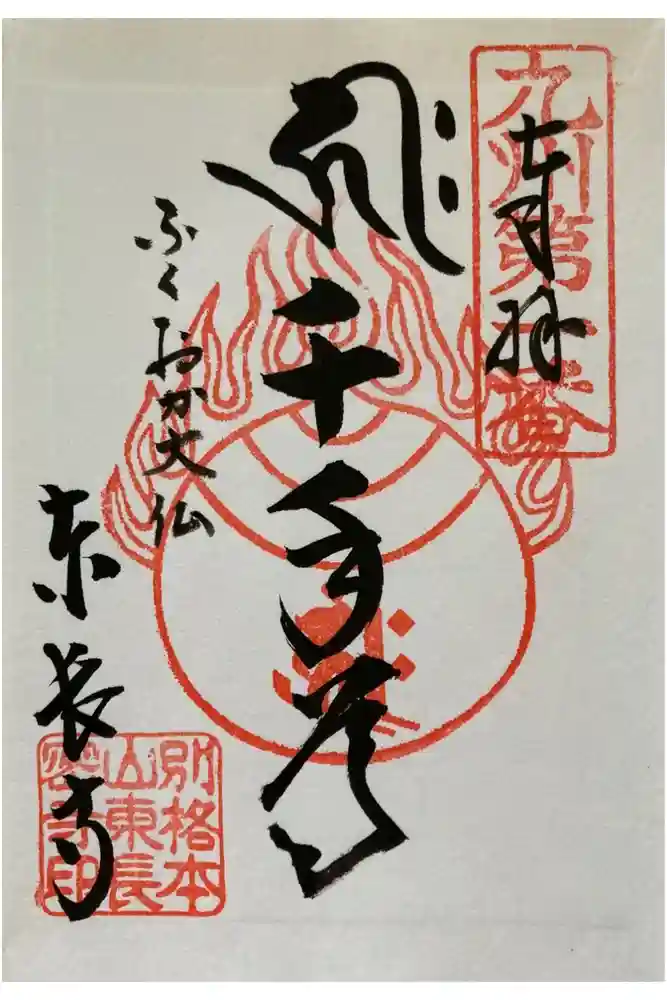 九州第一番
奉拝
ह्रीः
千手尊
ふくおか大仏
東長寺
別格本
山東長
密寺印